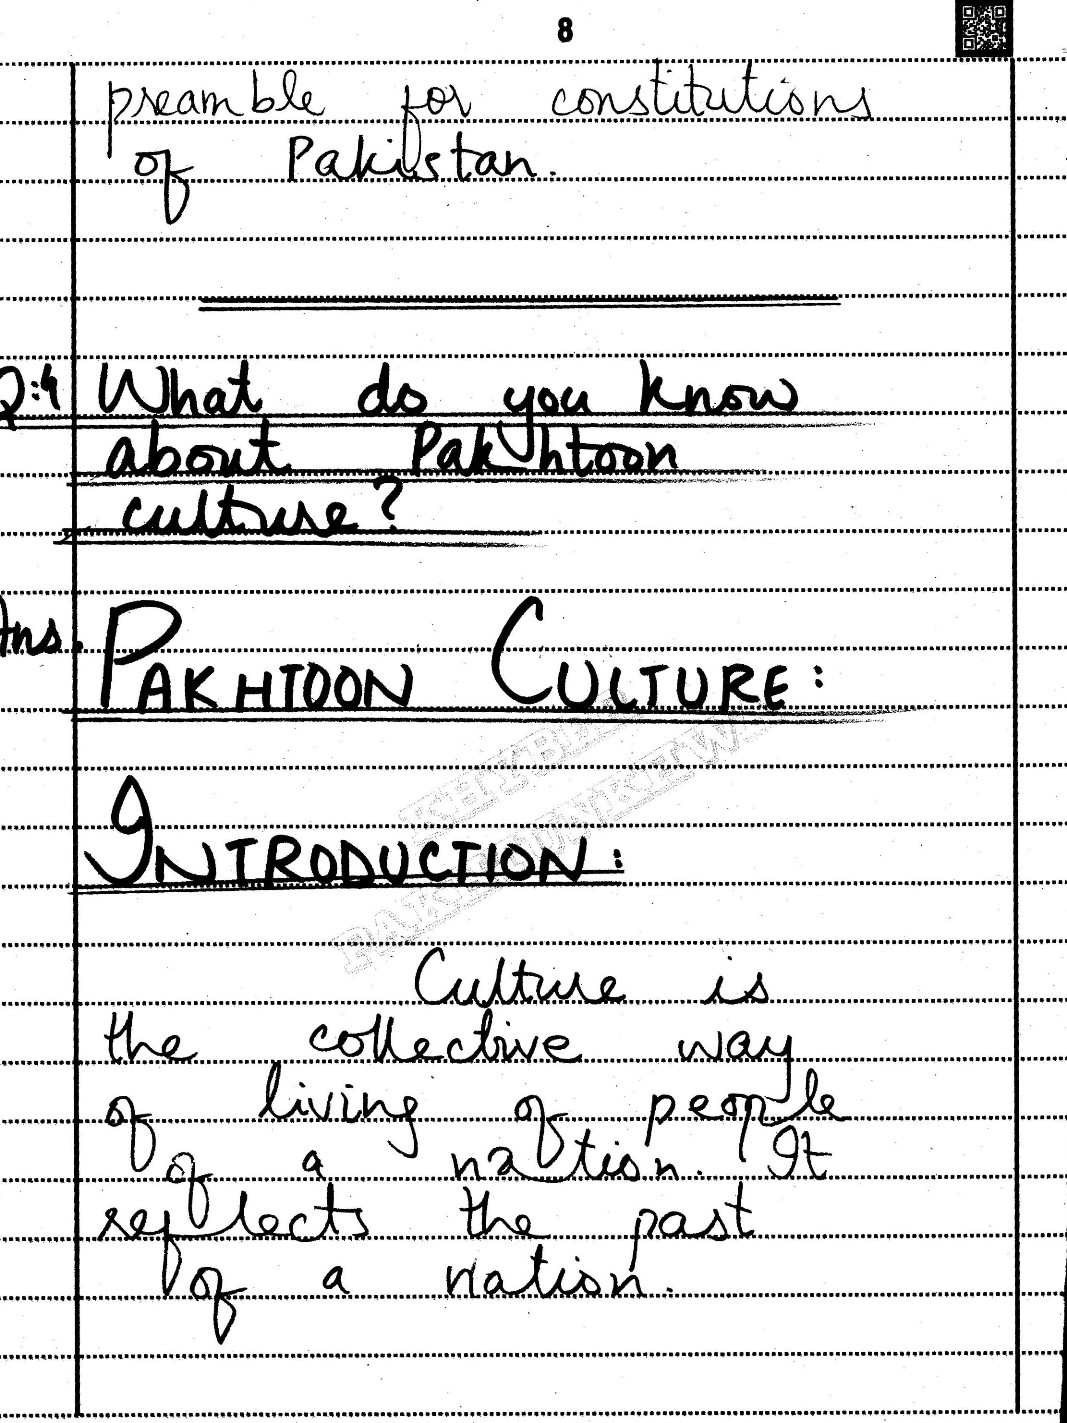 8
preamble for constitutions
of Pakistan.
Q:4 What do you know
about Pakhtoon
culture?
Ans. PAKHTOON CULTURE:
INTRODUCTION:
KHYBER
PAKHTUNKHWA
Culture is
the collective way
of living of people
of a nation. It
reflects the past
of a nation.